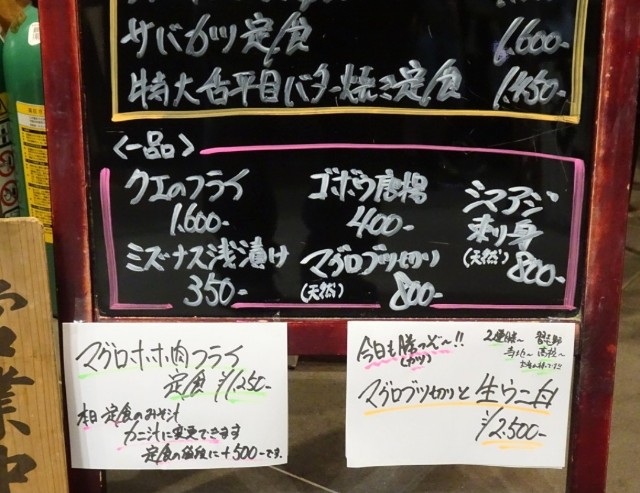 サバカツ定食
1,600-
特大舌平目バター焼き定食 1,450-
<一品>
クエのフライ
1,600-
ゴボウ唐揚
400-
シマアジ
刺身
(天然) 800-
ミズナス浅漬け
350-
マグロブツ切り
(天然) 800-
マグロホホ肉フライ
定食 ¥1,250-
本日定食のみそ汁
カニ汁に変更できます
定食の値段に+500-です。
今日も勝つぞ~!!
(カツ)
マグロブツ切りと生ウニ丼
¥2,500-
営業中